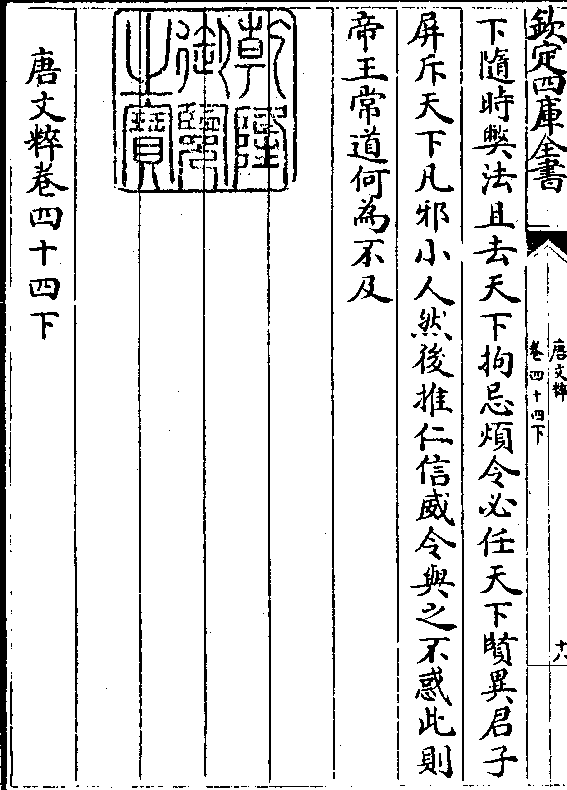 欽定四庫全書
唐文粹
卷四十四下
十八
下隨時弊法且去天下拘忌煩令必任天下賢異君子
屏斥天下凡邪小人然後推仁信威令與之不惑此則
帝王常道何為不及
乾隆
御覽
之寶
唐文粹卷四十四下